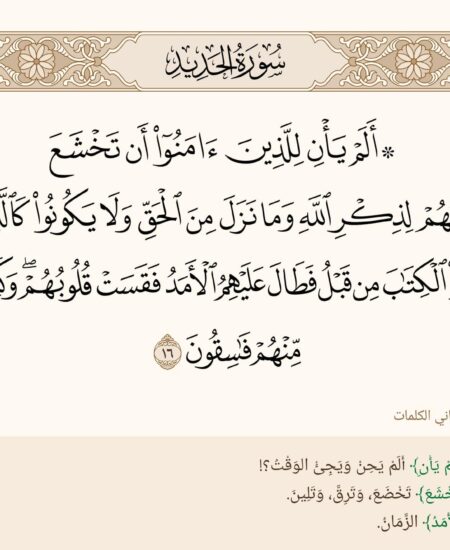 سُورَةُ الحَدِيدِ
۞ أَلَمْ يَأْنِ لِلَّذِينَ ءَامَنُوٓاْ أَن تَخْشَعَ
لِذِكْرِ ٱللَّهِ وَمَا نَزَلَ مِنَ ٱلْحَقِّ وَلَا يَكُونُواْ
ٱلْكِتَٰبَ مِن قَبْلُ فَطَالَ عَلَيْهِمُ ٱلْأَمَدُ فَقَسَتْ قُلُوبُهُمْۖ
مِّنْهُمْ فَٰسِقُونَ ١٦
الكلمات
يَأْنِ﴾ أَلَمْ يَحِنْ وَيَجِئُ الوَقْتُ؟!
تَخْضَعَ، وَتَرِقَّ، وَتَلِينَ.
الزَّمَانُ.